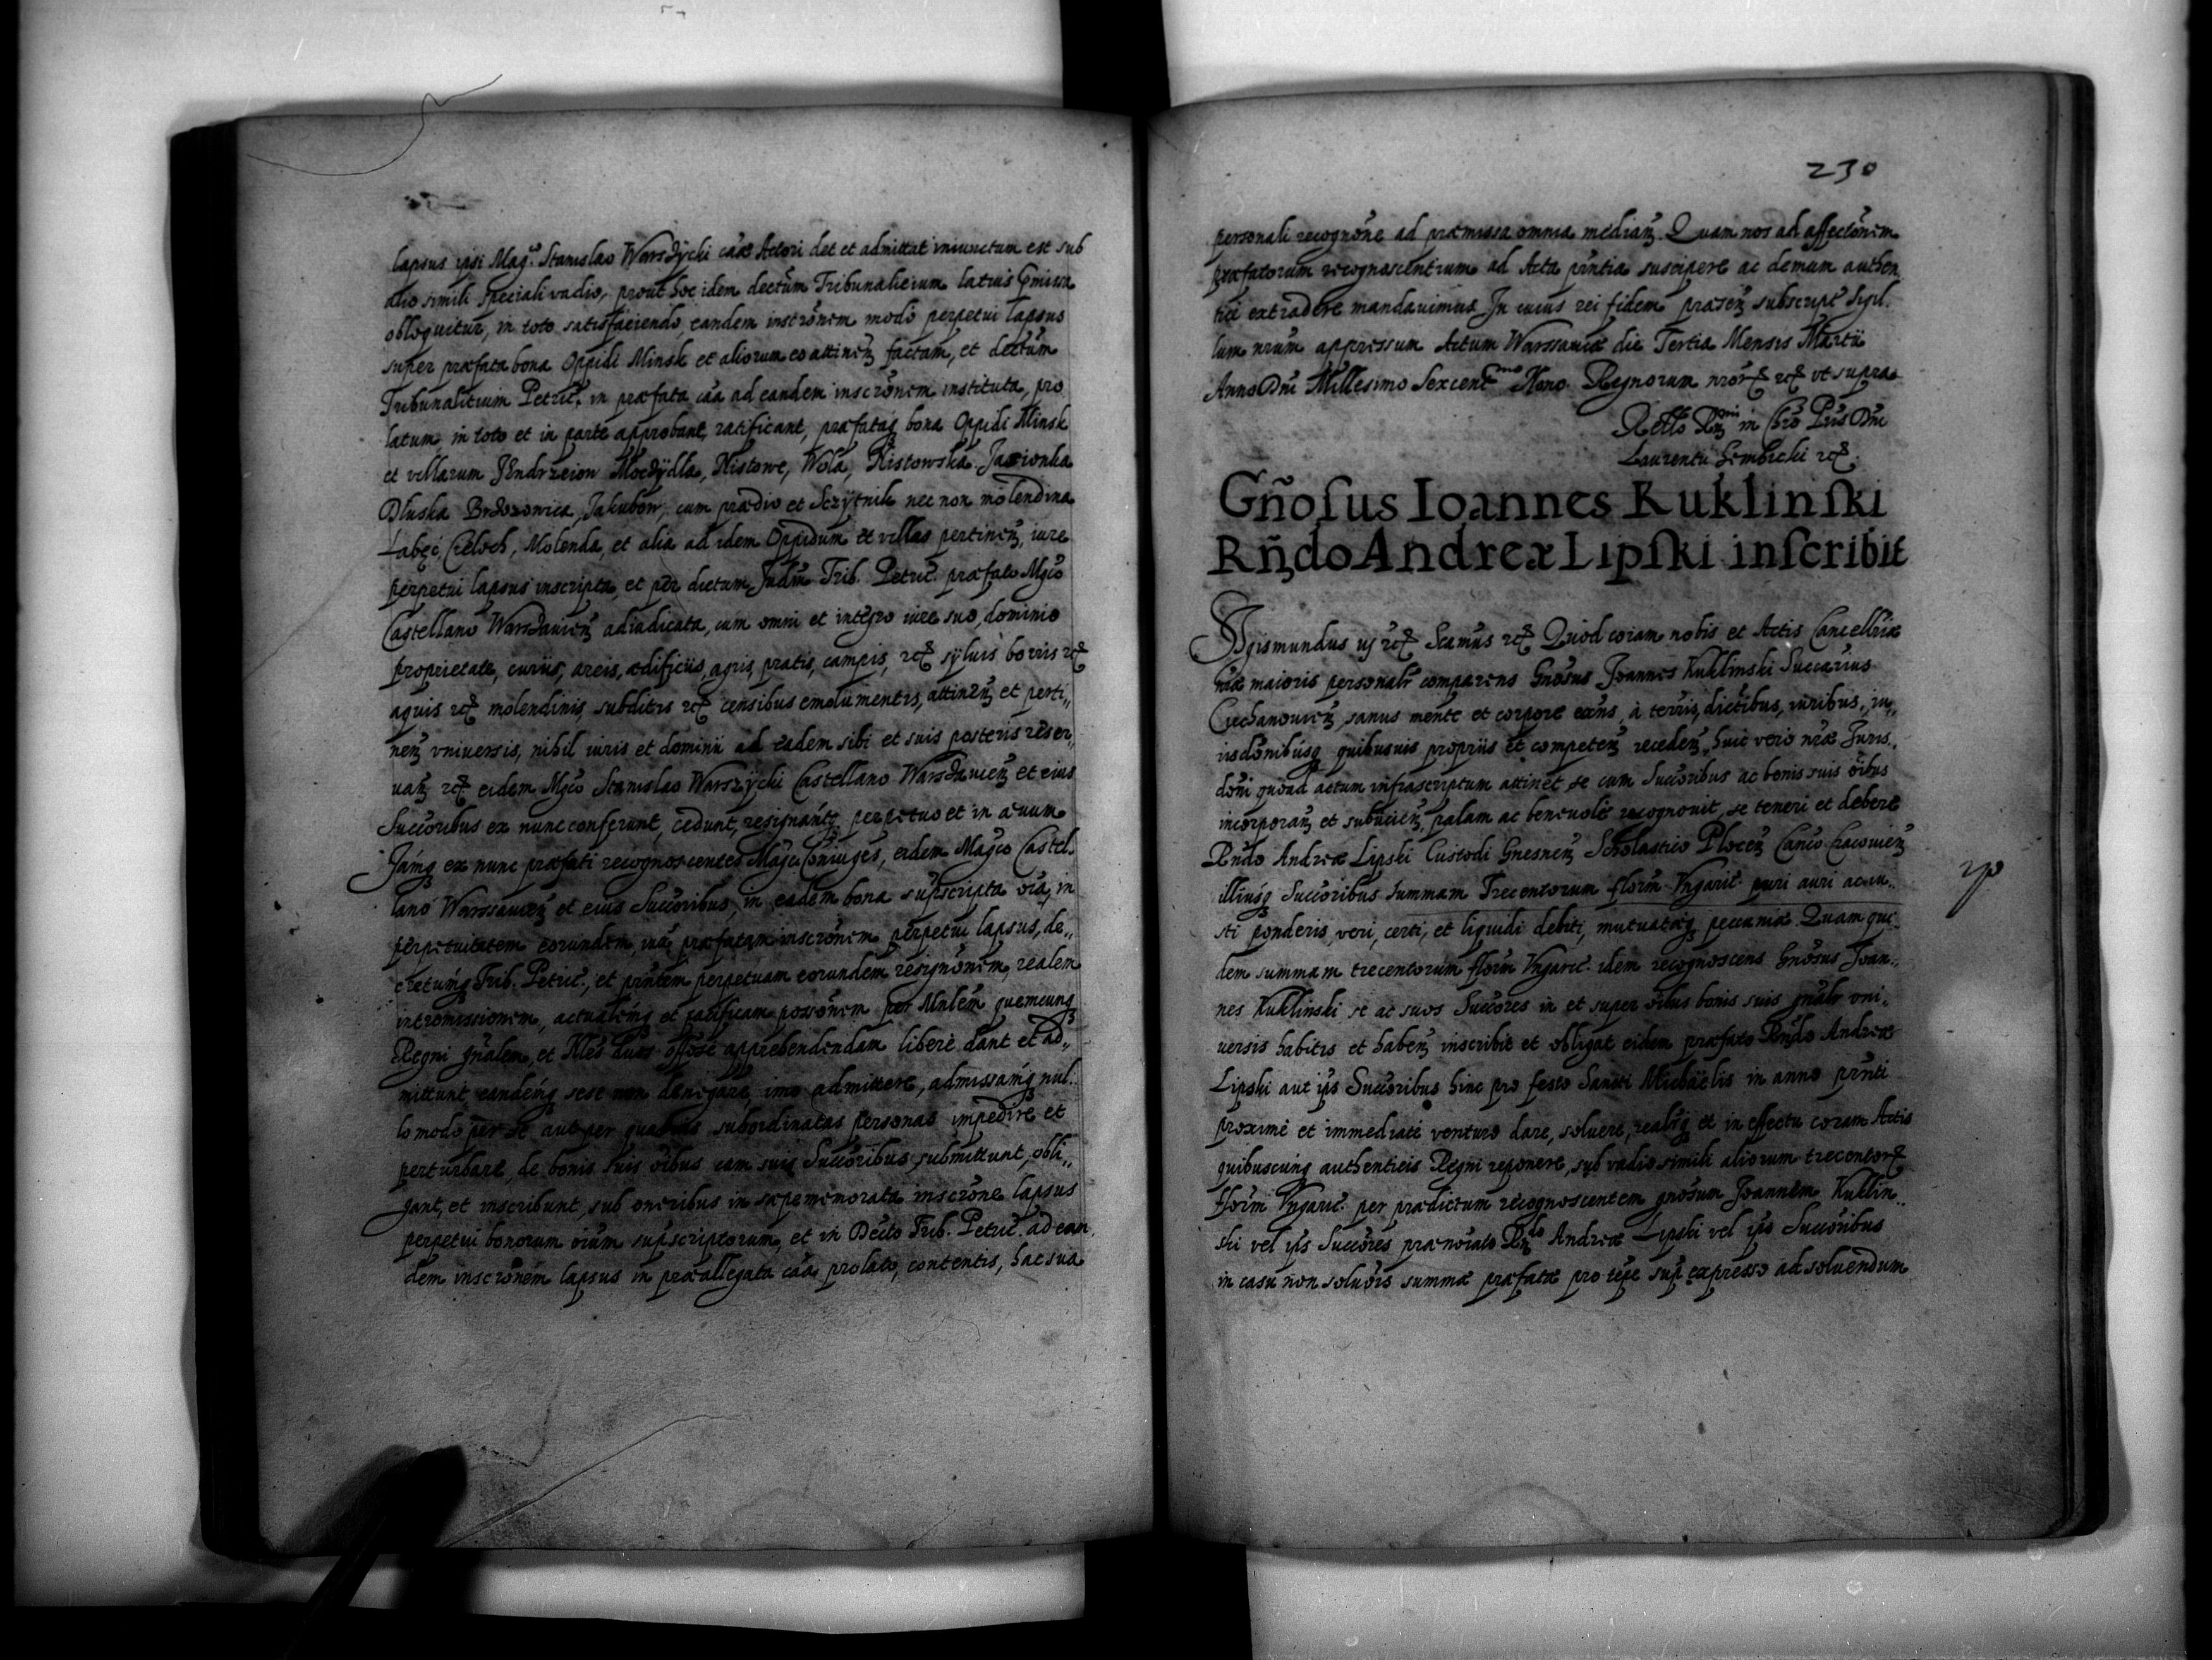 lapsus ipsi Mag.co Stanislao Warsdÿcki cãae Actori det et admittat iniunctum est sub
alio simili speciali vadio, prout hoc idem decṫum Tribunalicium latius p̃missa
obloquitur, in toto satisfaciendo eandem inscrõnem modo perpetui lapsus
super præfata bona Oppidi Minsk et aliorum eo attineñ factam, et decṫum
Tribunalitium Petric̃. in præfata cãa ad eandem inscrõnem instituta, pro
latum in toto et in parte approbant, ratificant, præfataq̃ bona Oppidi Minsk
et villarum Jendrzeiow Mocdÿdla, Nistowe, Wola, Ristowska. Jasionka
Dluska Brdozowica, Jakubow, cum prædio et Sczÿtnik nec non molendina
Labęć Cieloch, Molenda, et alia ad idem Oppidum et villas pertineñ, iure
perpetui lapsus inscripta, et per dictum Judm̃ Trib. Petric̃. præfato Mg̃co
Castellano Warsdauieñ adiudicata, cum omni et integro iure suo, dominio
proprietate, curiis, areis, ædificiis, agris, pratis, campis, rc̃ sÿluis borris rc̃
aquis rc̃ molendinis, subditis rc̃ censibus emolumentis, attineñ et perti„
neñ vniuersis, nihil iuris et dominii ad eadem sibi et suis posteris reser„
uañ rc̃ eidem Mg̃co Stanislao Warszÿcki Castellano Warsdauieñ et eius
Succoribus ex nunc conferunt, cedunt, resignantq̃ perpetuo et in ævum
Jamq̃ ex nunc præfati recognoscentes Mag̃ci Coniuges, eidem Mag̃co Castel„
lano Warssauieñ et eius Succoribus, in eadem bona sup̃scripta oĩa, in
perpetuitatem eorundem, iux̃ præfatam inscrõnem perpetui lapsus, de„
cretumq̃ Trib. Petric̃., et pñtem perpetuam eorundem resignõnem, realem
intromissionem, actualemq̃ et pacificam possõnem per Mnlem quemcunq̃
Regni gñalem, et Nles duos apprehendendam libere dant et ad„
mittunt eandemq̃ sese non denegare, imo admittere, admissamq̃ nul„
lo modo per se aut per quasuis subordinatas personas impedire et
perturbare, de bonis suis oĩbus cum suis Succoribus submittunt, obli„
gant, et inscribunt, sub oneribus in sæpememorata inscrõne lapsus
perpetui bonorum oĩum sup̃scriptorum, et in Decṫo Trib. Petric̃. ad ean„
dem inscrõnem lapsus in præallegata cãa prolato, contentis, hac sua
230
personali recognõne ad præmissa omnia mediañ. Quam nos ad affectõnem
præfatorum recognoscentium ad Acta pñtia suscipere ac demum authen„
tice extradere mandauimus. In cuius rei fidem præseñ subscrip̃t Sigil„
lum nr̃um appressum Actum Warssauiæ die Tertia Mensis Martii
Anno Dñi Millesimo Sexcentmo Nono. Regnorum nror̃ rc̃ vt supra
Rel̃lo Rñ in Chr̃o Pr̃is Dñi
Laurentii Gembicki rc̃.
Gñosus Ioannes Kuklinski
Rñdo Andreæ Lipski inscribit
Sigismundus iij rc̃ Sc̃amus rc̃ Quod coram nobis et Actis Cancellr̃iæ
nr̃æ maioris personalr̃ comparens Gñosus Joannes Kuklinski Succarius
Ciechanouieñ, sanus mente et corpore exñs, à terris, districtibus, iuribus, iu„
risdõnibusq̃ quibusuis propriis et competeñ recedeñ, huic vero nr̃æ Juris„
dõni quoad actum infrascriptum attinet se cum Succoribus ac bonis suis oĩbus
incorporañ et subiicieñ, palam ac beneuole recognouit, se teneri et debere
Rñdo Andreæ Lipski Custodi Gnesneñ Scholastico Ploceñ Canc̃o Cracouieñ
illiusq̃ Succoribus summam Trecentorum florñ Vngaric̃. puri auri ac iu„
sti ponderis, veri, certi, et liquidi debiti, mutuatæq̃ peccuniæ Quam qui„
dem summam trecentorum florñ Vngaric̃. idem recognoscens Gñosus Joan„
nes Kuklinski se ac suos Succores in et super oĩbus bonis suis gñalr̃ vni„
uersis habitis et habeñ inscribit et obligat eidem præfato Rñdo Andreæ
Lipski aut ip̃s Succoribus hinc pro festo Sancti Michaëlis in anno pñti
proximè et immediatè venturo dare, soluere, realiq̃ et in effectu coram Actis
quibuscunq̃ authenticis Regni reponere, sub vadio simili aliorum trecentor̃
florñ Vngaric̃. per prædictum recognoscentem gñosum Joannem Kuklin„
ski vel ip̃s Succores prænoiato Rñdo Andreæ Lipski vel ip̃s Succoribus
in casu non soluõis summæ præfatæ pro tp̃e sup̃ expresso ad soluendum